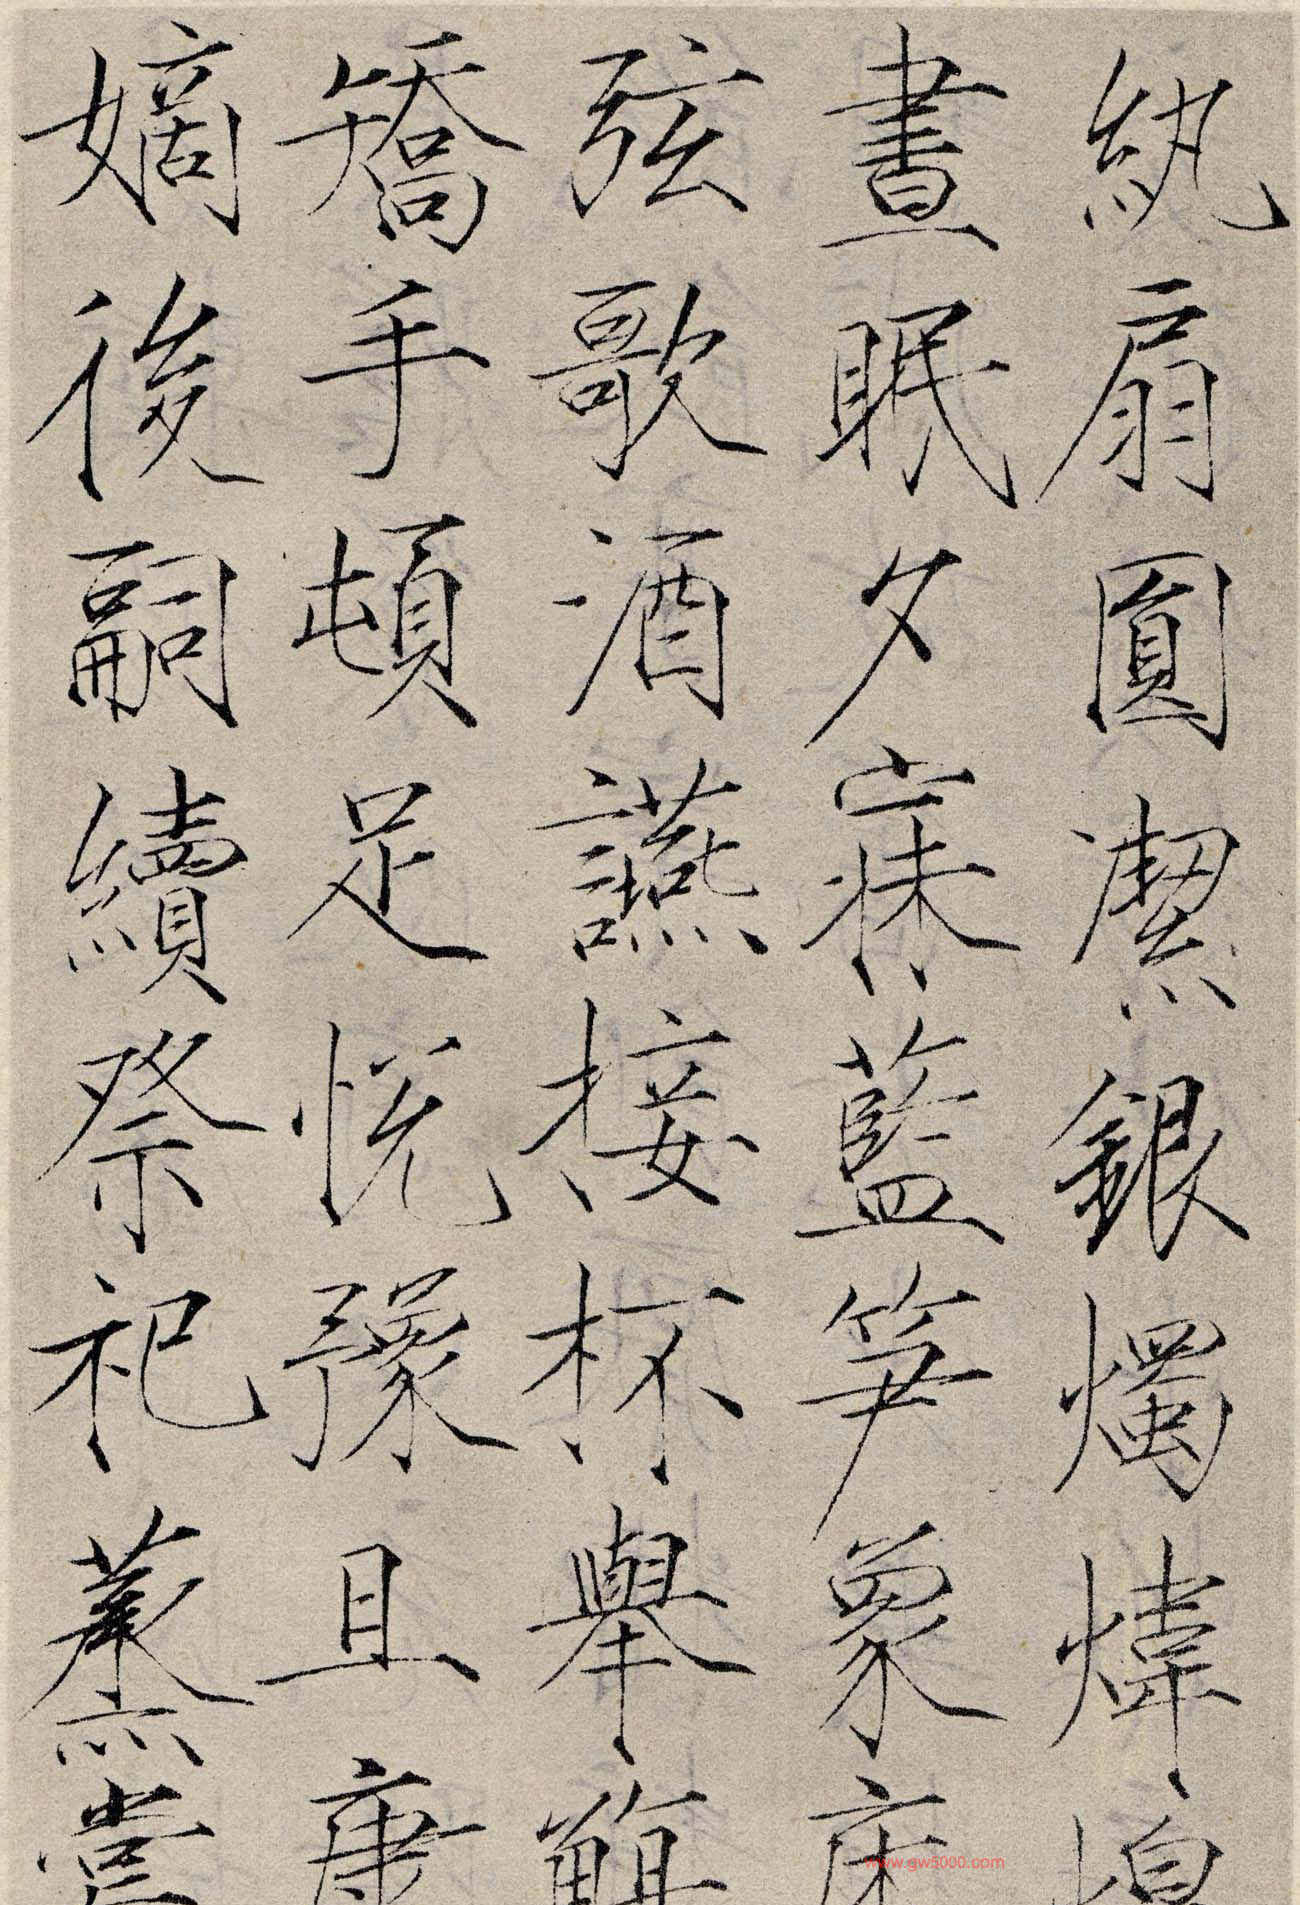 紈扇圓潔銀燭煒煌
晝眠夕寐藍笋象床
弦歌酒讌接杯舉觴
矯手頓足悅豫且康
嫡後嗣續祭祀蒸嘗
www.gw5000.com